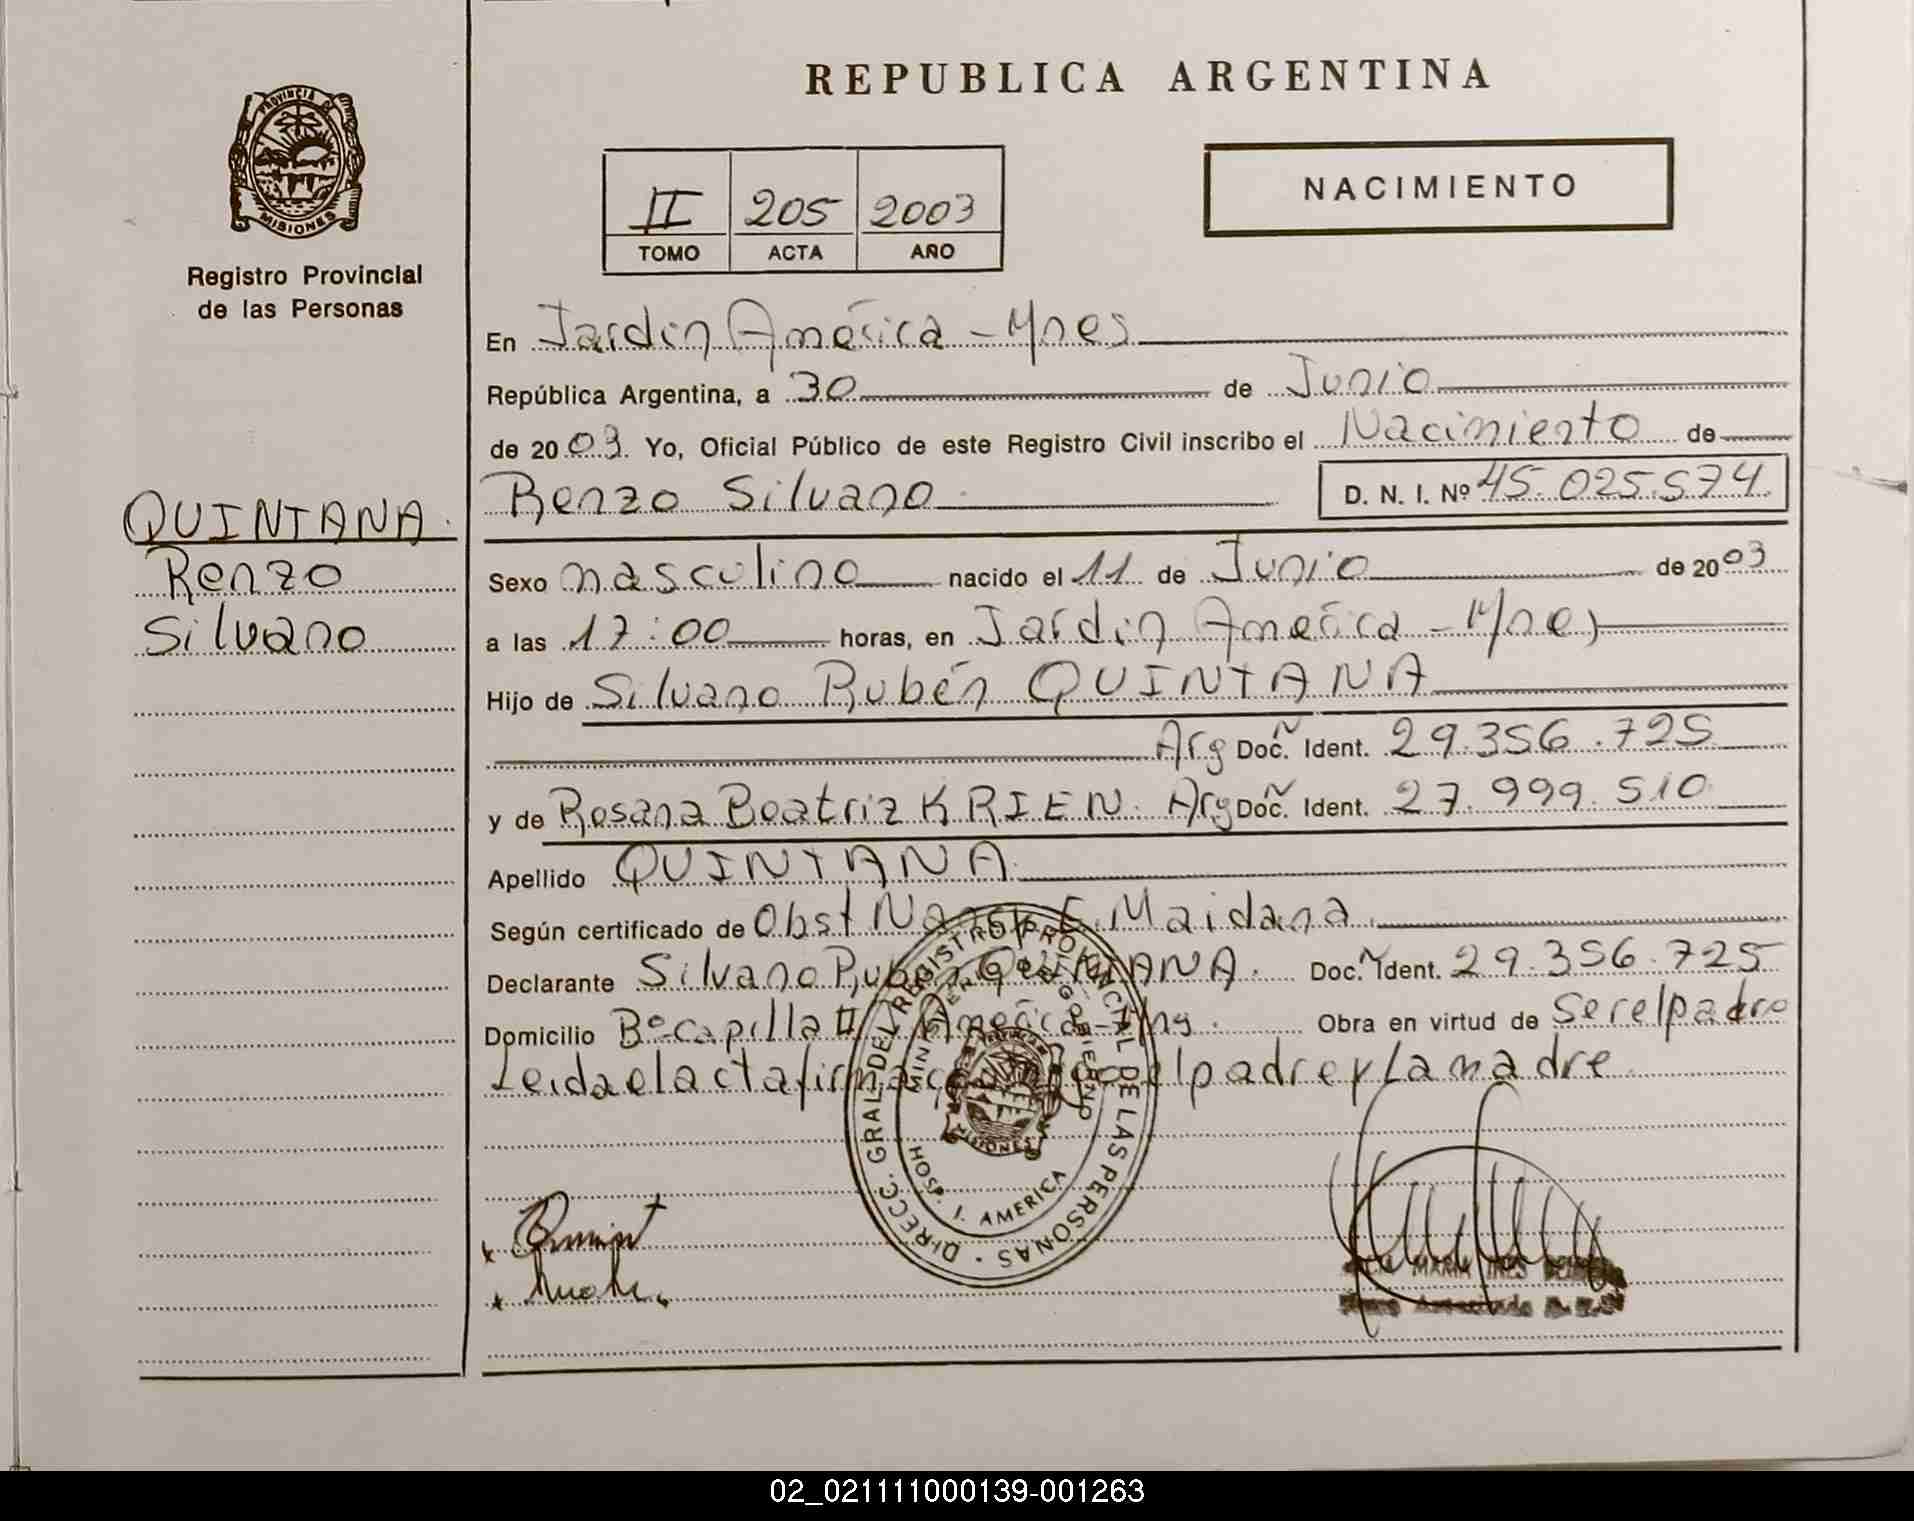 REPUBLICA ARGENTINA
PROVINCIA DE
MISIONES
Registro Provincial
de las Personas
II 205 2003
TOMO ACTA AÑO
NACIMIENTO
En Jardin América - Mnes
República Argentina, a 30 de Junio
de 2003 Yo, Oficial Público de este Registro Civil inscribo el Nacimiento de
Renzo Silvano D. N. I. Nº 45.025.574
QUINTANA
Renzo
Silvano
Sexo masculino nacido el 11 de Junio de 2003
a las 17:00 horas, en Jardin América - Mnes
Hijo de Silvano Rubén QUINTANA
Arg Doc. Ident. 29.356.725
y de Rosana Beatriz KRIEN. Arg Doc. Ident. 27.999.510
Apellido QUINTANA
Según certificado de Obst E. Maidana
Declarante Silvano Rubén QUINTANA. Doc. Ident. 29.356.725
Domicilio Bº Capilla II América - Obra en virtud de Ser el padre
Leida el acta firma el padre y La madre
DIRECC. GRAL. DEL REGISTRO PROVINCIAL DE LAS PERSONAS
MINISTERIO DE GOBIERNO
MISIONES
HOSP. J. AMERICA
MARIA INES
02_021111000139-001263